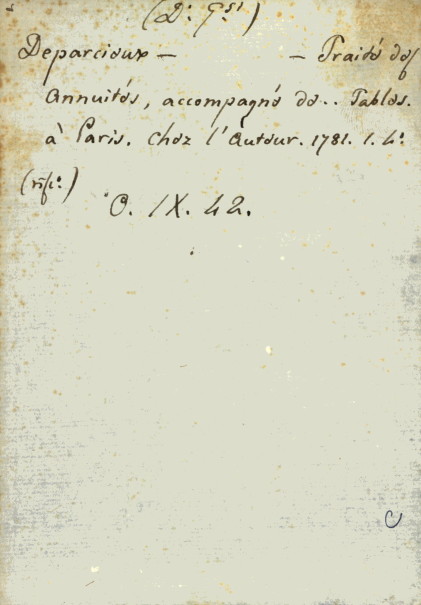 (D: G.si)
Deparcieux — — Traité des
Annuités, accompagné de.. Tables.
à Paris. Chez l'Auteur. 1781. 1. 4°
(rif:°)
O. IX. 42.
C